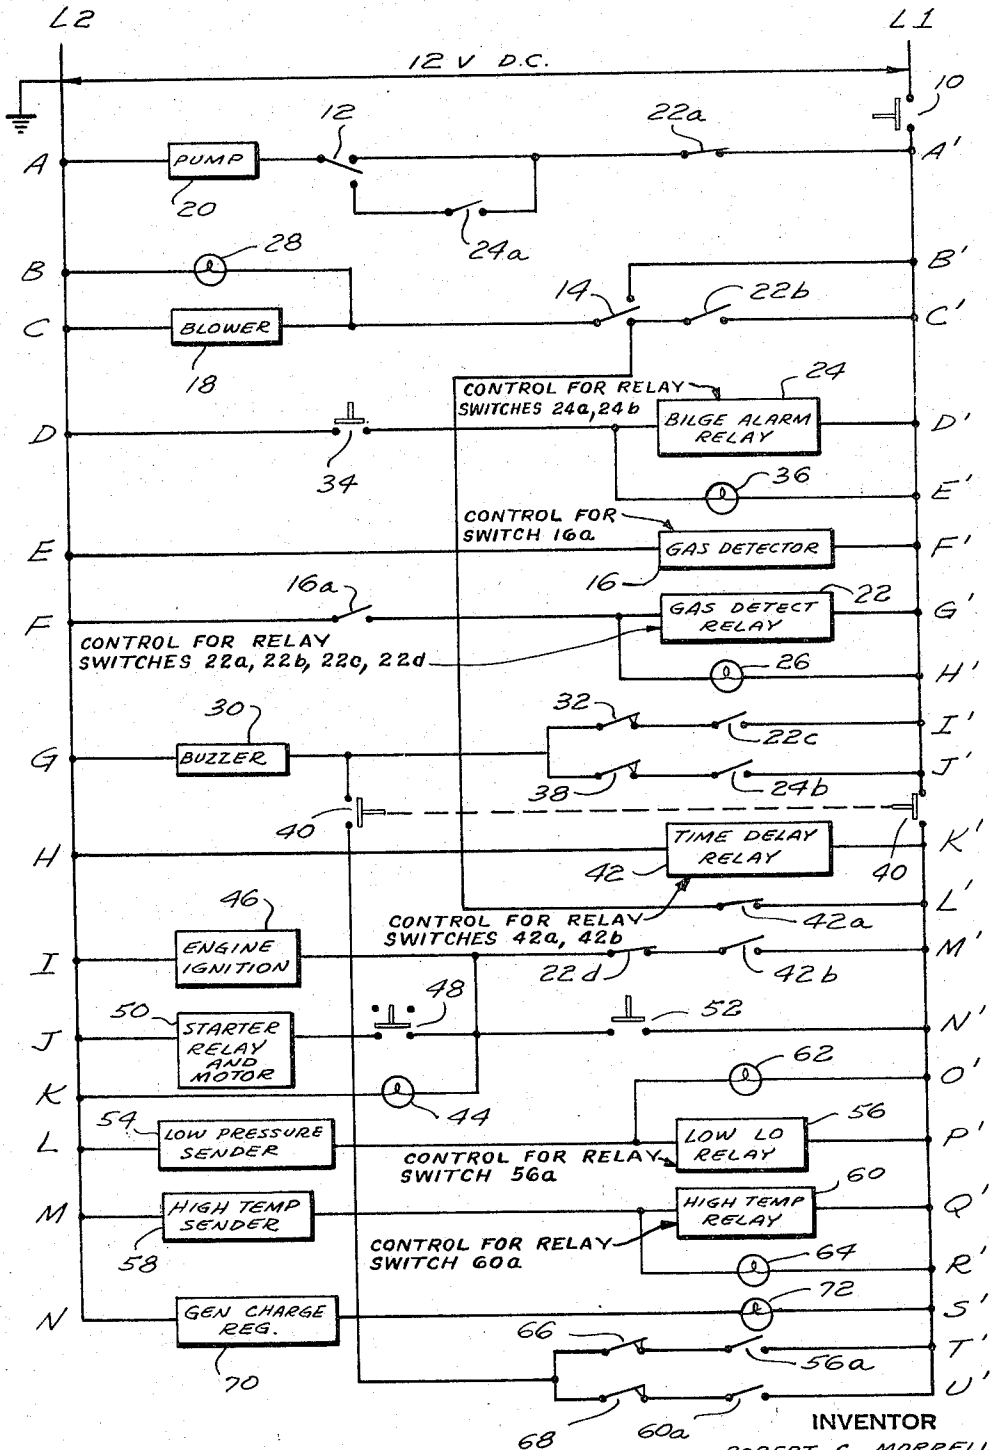 L2 L1
12 V D.C.
10
12
22a
A PUMP A'
20
24a
28
B B'
14 22b
C BLOWER C'
18
24
CONTROL FOR RELAY
SWITCHES 24a, 24b
D BILGE ALARM D'
RELAY
34
36
E'
CONTROL FOR
SWITCH 16a
E GAS DETECTOR F'
16
16a
22
F GAS DETECT G'
RELAY
CONTROL FOR RELAY
SWITCHES 22a, 22b, 22c, 22d
26
H'
30
32
I'
22c
G BUZZER J'
38 24b
40
40
H TIME DELAY K'
RELAY
42
46
L'
42a
CONTROL FOR RELAY
SWITCHES 42a, 42b
I ENGINE M'
IGNITION
22d 42b
50 48 52
J STARTER N'
RELAY
AND
MOTOR
62
O'
K
44
54
56
L LOW PRESSURE P'
SENDER
LOW LO
RELAY
CONTROL FOR RELAY
SWITCH 56a
60
M HIGH TEMP Q'
SENDER
HIGH TEMP
RELAY
58
CONTROL FOR RELAY
SWITCH 60a
64
R'
72
N GEN CHARGE S'
REG.
70
66
T'
56a
U'
68 60a
INVENTOR